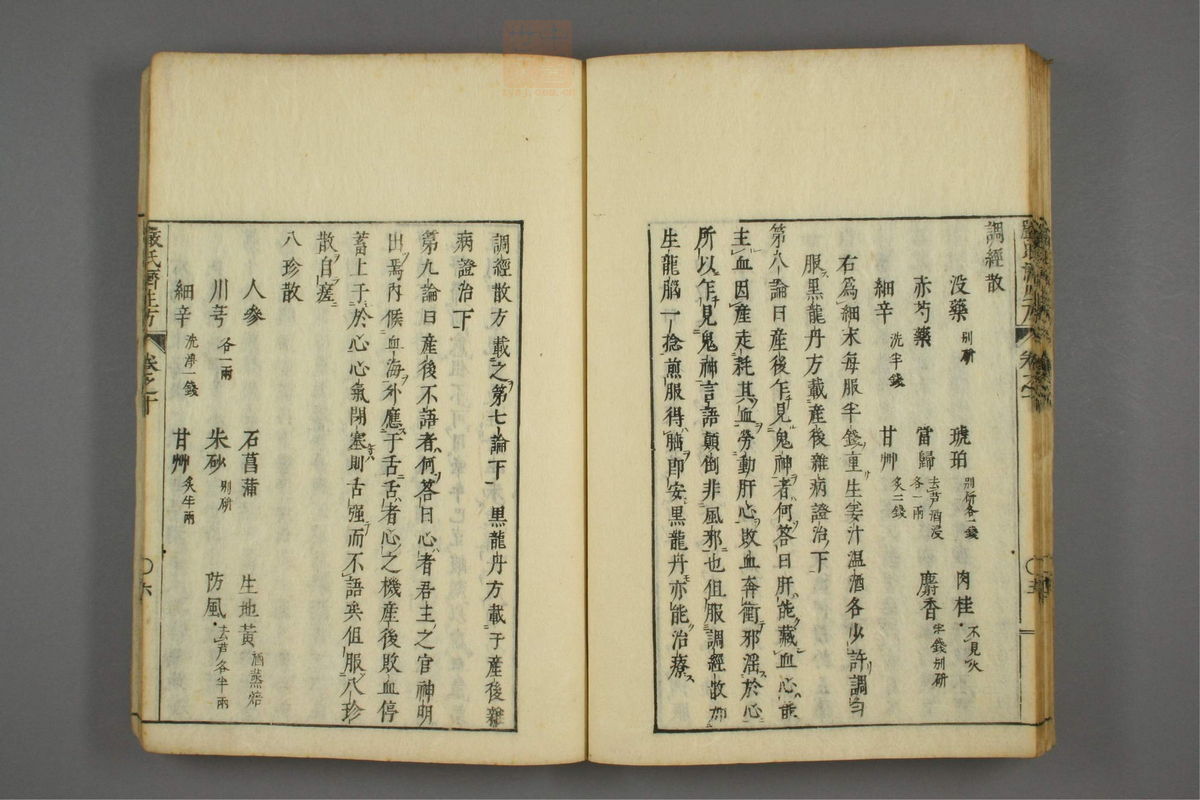 調經散
没藥 別研 琥珀 別研各一錢 肉桂 不見火
赤芍藥 當歸 去芦酒浸各一兩 麝香 半錢別研
細辛 洗半錢 甘艸 炙二錢
右爲細末每服半錢重生姜汁温酒各少許調匀
服黒龍丹方載産後雜病證治下
第八論曰産後乍見鬼神者何答曰肝能藏血心能
主血因産走耗其血勞動肝心敗血奔衝邪淫於心
所以乍見鬼神言語顛倒非風邪也但服調經散加
生龍腦一捻煎服得睡即安黒龍丹亦能治療
調經散方載之第七論下 黒龍丹方載于産後雜
病證治下
第九論曰産後不語者何答曰心者君主之官神明
出焉内候血海外應于舌舌者心之機産後敗血停
蓄上于於心心氣閉塞則舌强而不語矣但服八珍
散自瘥
八珍散
人參 石菖蒲 生地黄 酒蒸焙
川芎 各一兩 朱砂 別研 防風 去芦各半兩
細辛 洗淨一錢 甘艸 炙半兩
嚴氏濟生方 卷之十 〇六